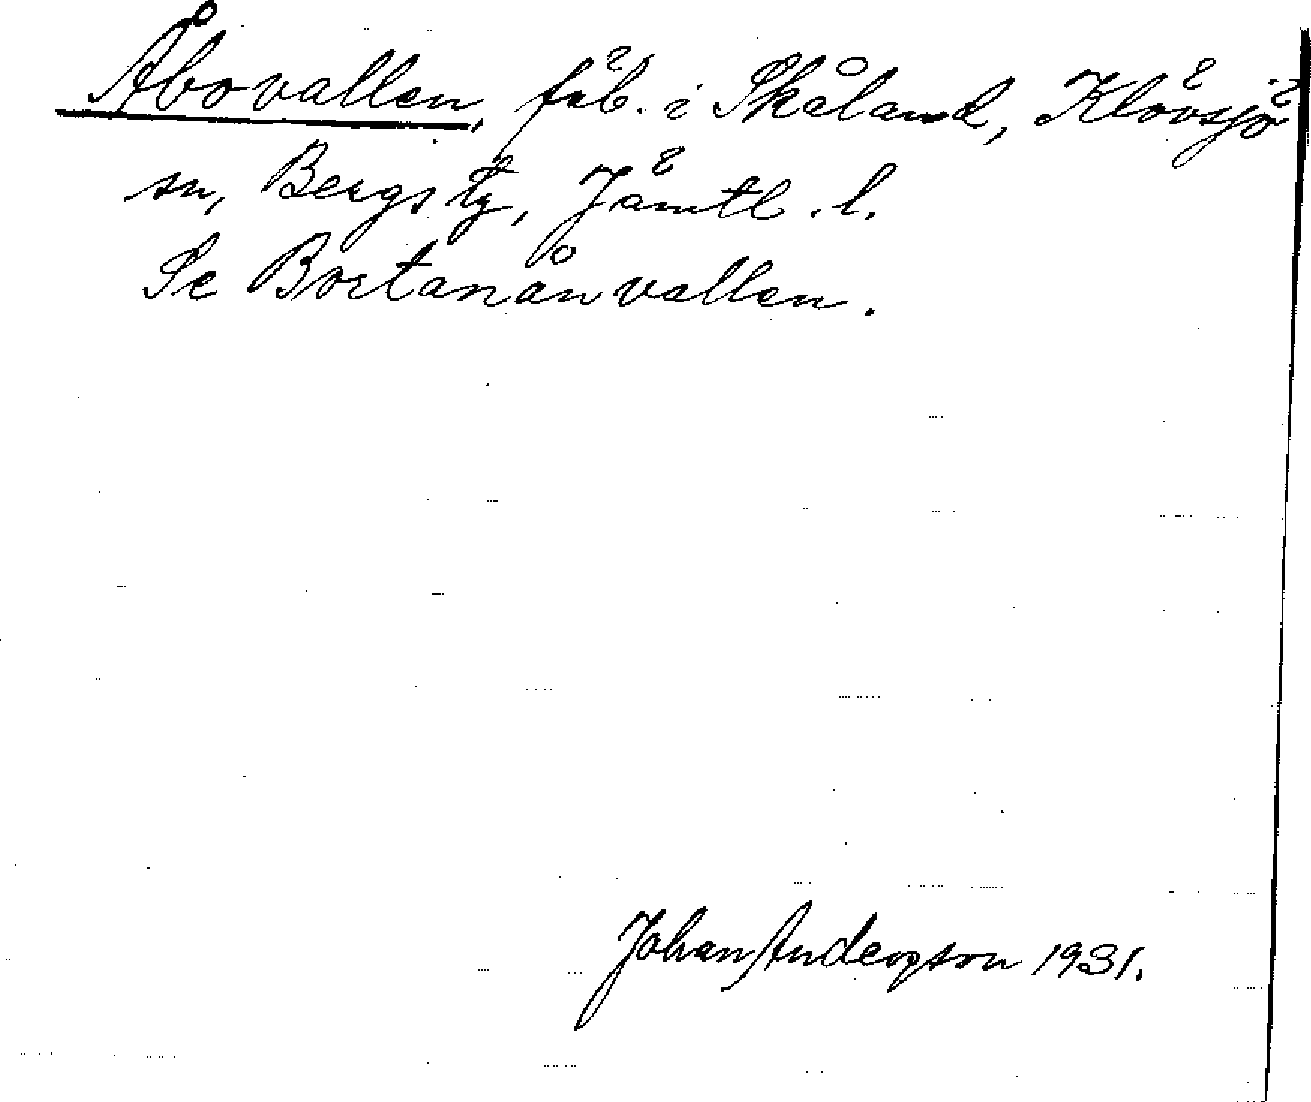 Åbovallen, fäb. i Skåland, Klövsjö
sn, Bergs tg, Jämtl. l.
Se Bortanånvallen.
Johan Andersson 1931.